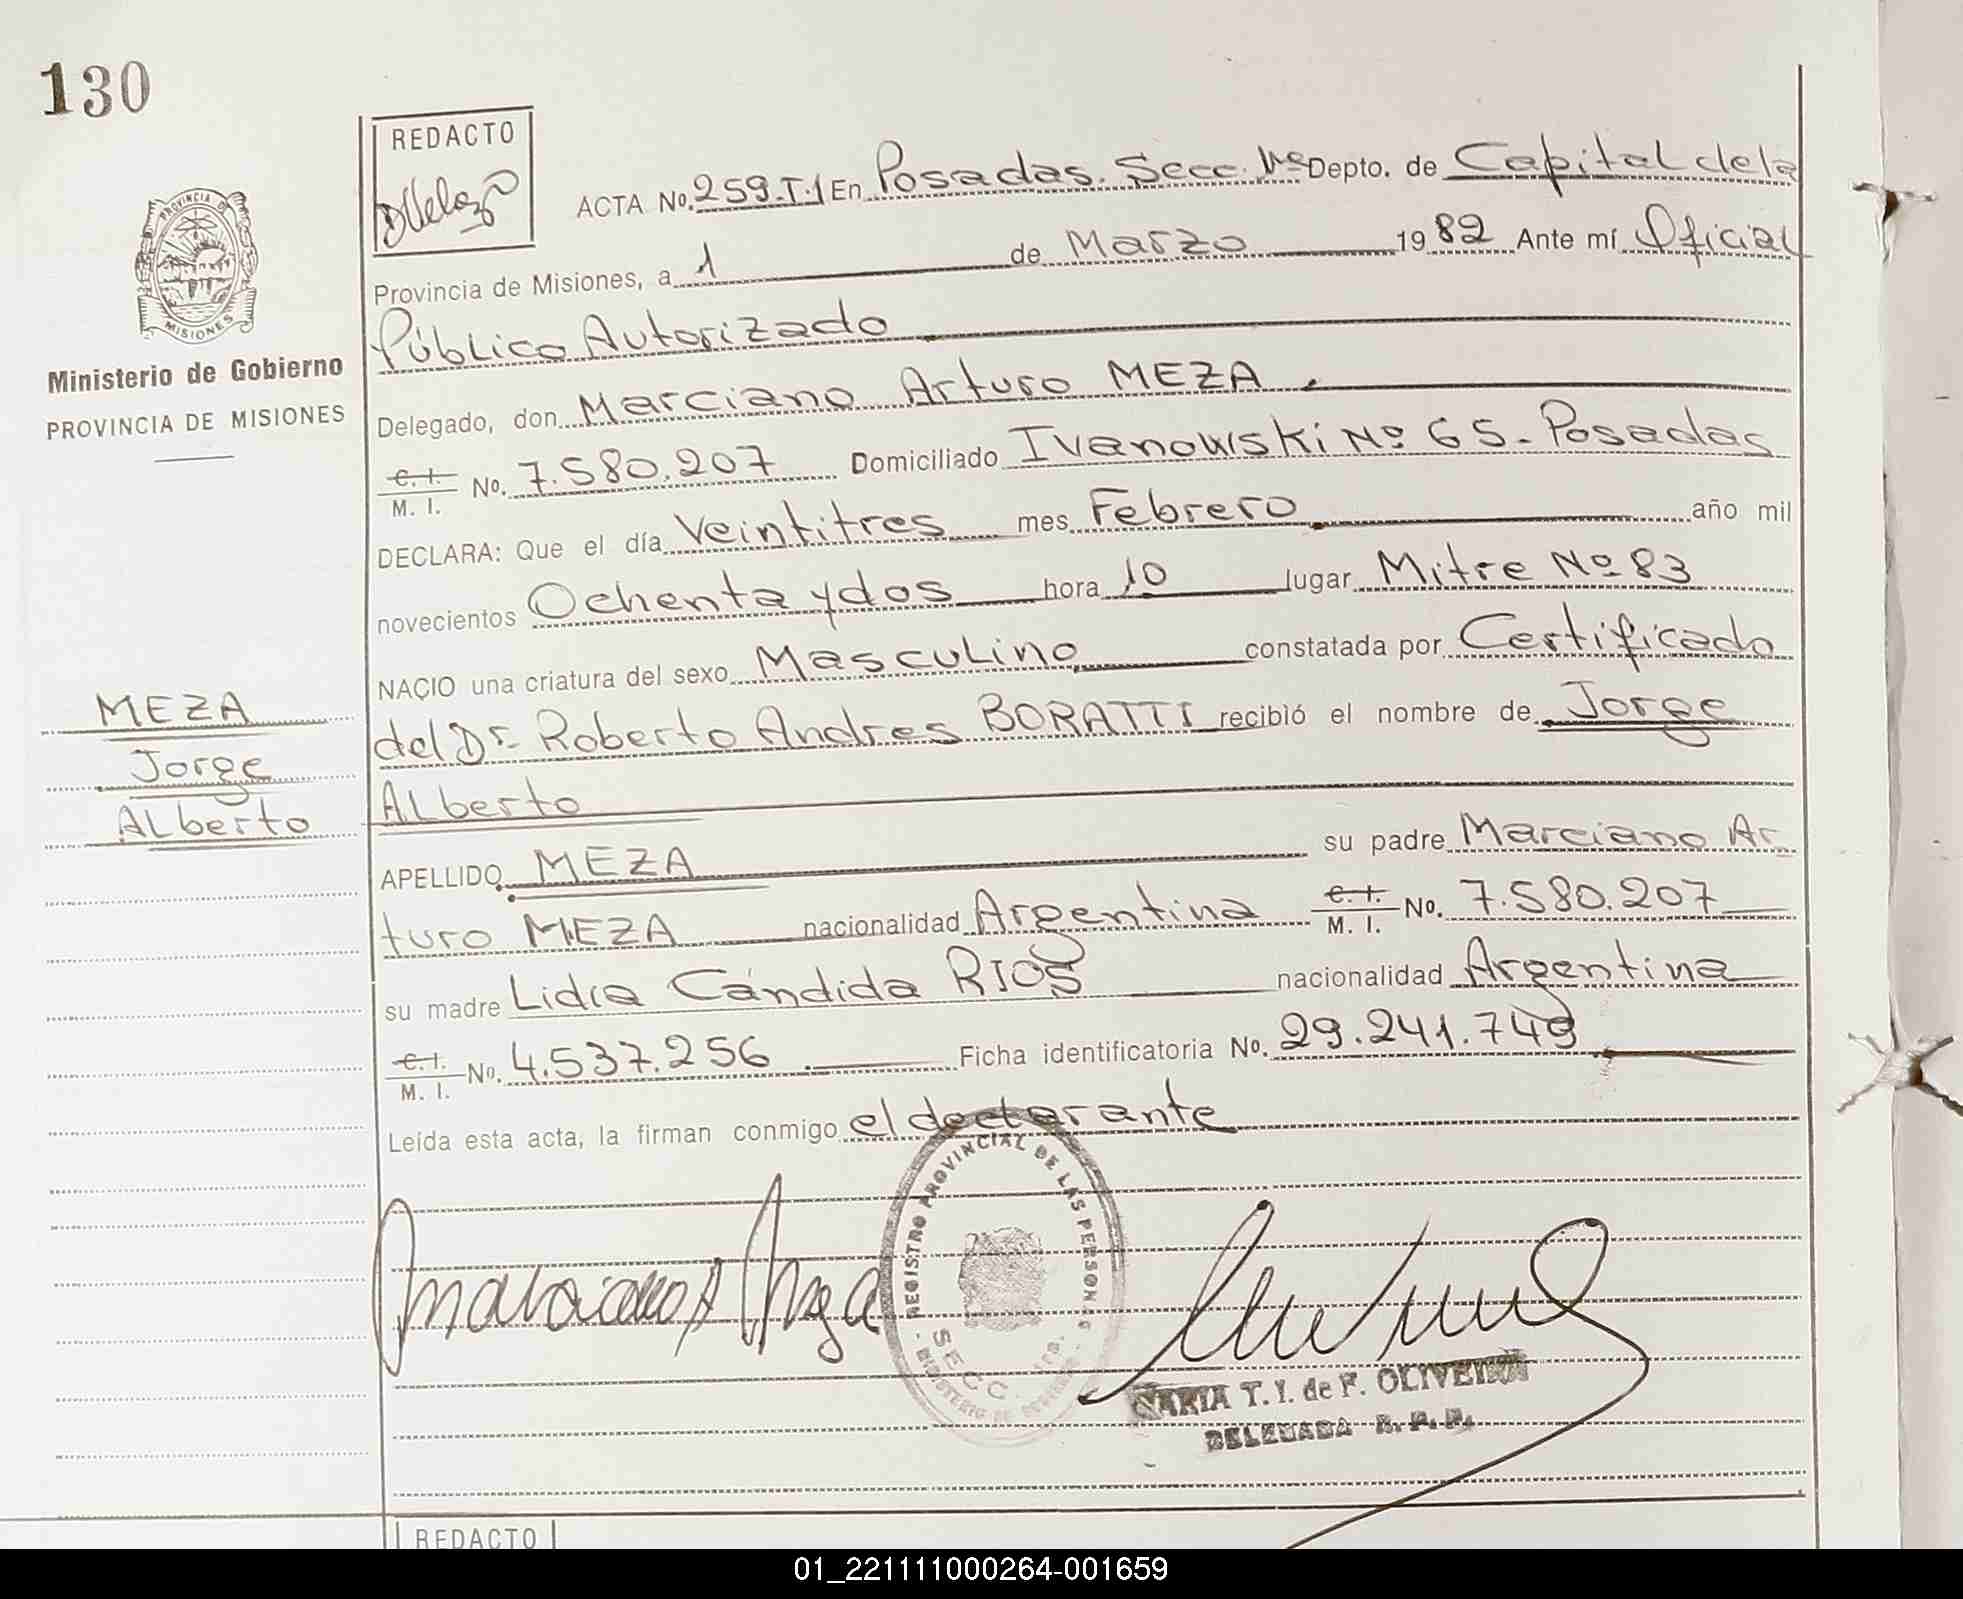 130
REDACTO
PROVINCIA DE
MISIONES
Ministerio de Gobierno
PROVINCIA DE MISIONES
ACTA No. 259.T.1 En Posadas. Secc. 1ra Depto. de Capital de la
Provincia de Misiones, a 1 de Marzo 1982 Ante mí Oficial
Público Autorizado
Delegado, don Marciano Arturo MEZA.
C. I. M. I. No. 7.580.207 Domiciliado Ivanowski Nº 65 - Posadas
DECLARA: Que el día Veintitres mes Febrero año mil
novecientos Ochenta y dos hora 10 lugar Mitre Nº 83
NACIO una criatura del sexo Masculino constatada por Certificado
del Dr. Roberto Andres BORATTI recibió el nombre de Jorge
Alberto
MEZA
Jorge
Alberto
APELLIDO MEZA su padre Marciano Ar
turo MEZA nacionalidad Argentina C. I. M. I. No. 7.580.207
su madre Lidia Cándida RIOS nacionalidad Argentina
C. I. M. I. No. 4.537.256 Ficha identificatoria No. 29.241.749
Leída esta acta, la firman conmigo el declarante
REGISTRO PROVINCIAL DE LAS PERSONAS
SECC.
MARIA T. I. de F. OLIVEIRA
DELEGADA R. P. P.
REDACTO
01_221111000264-001659